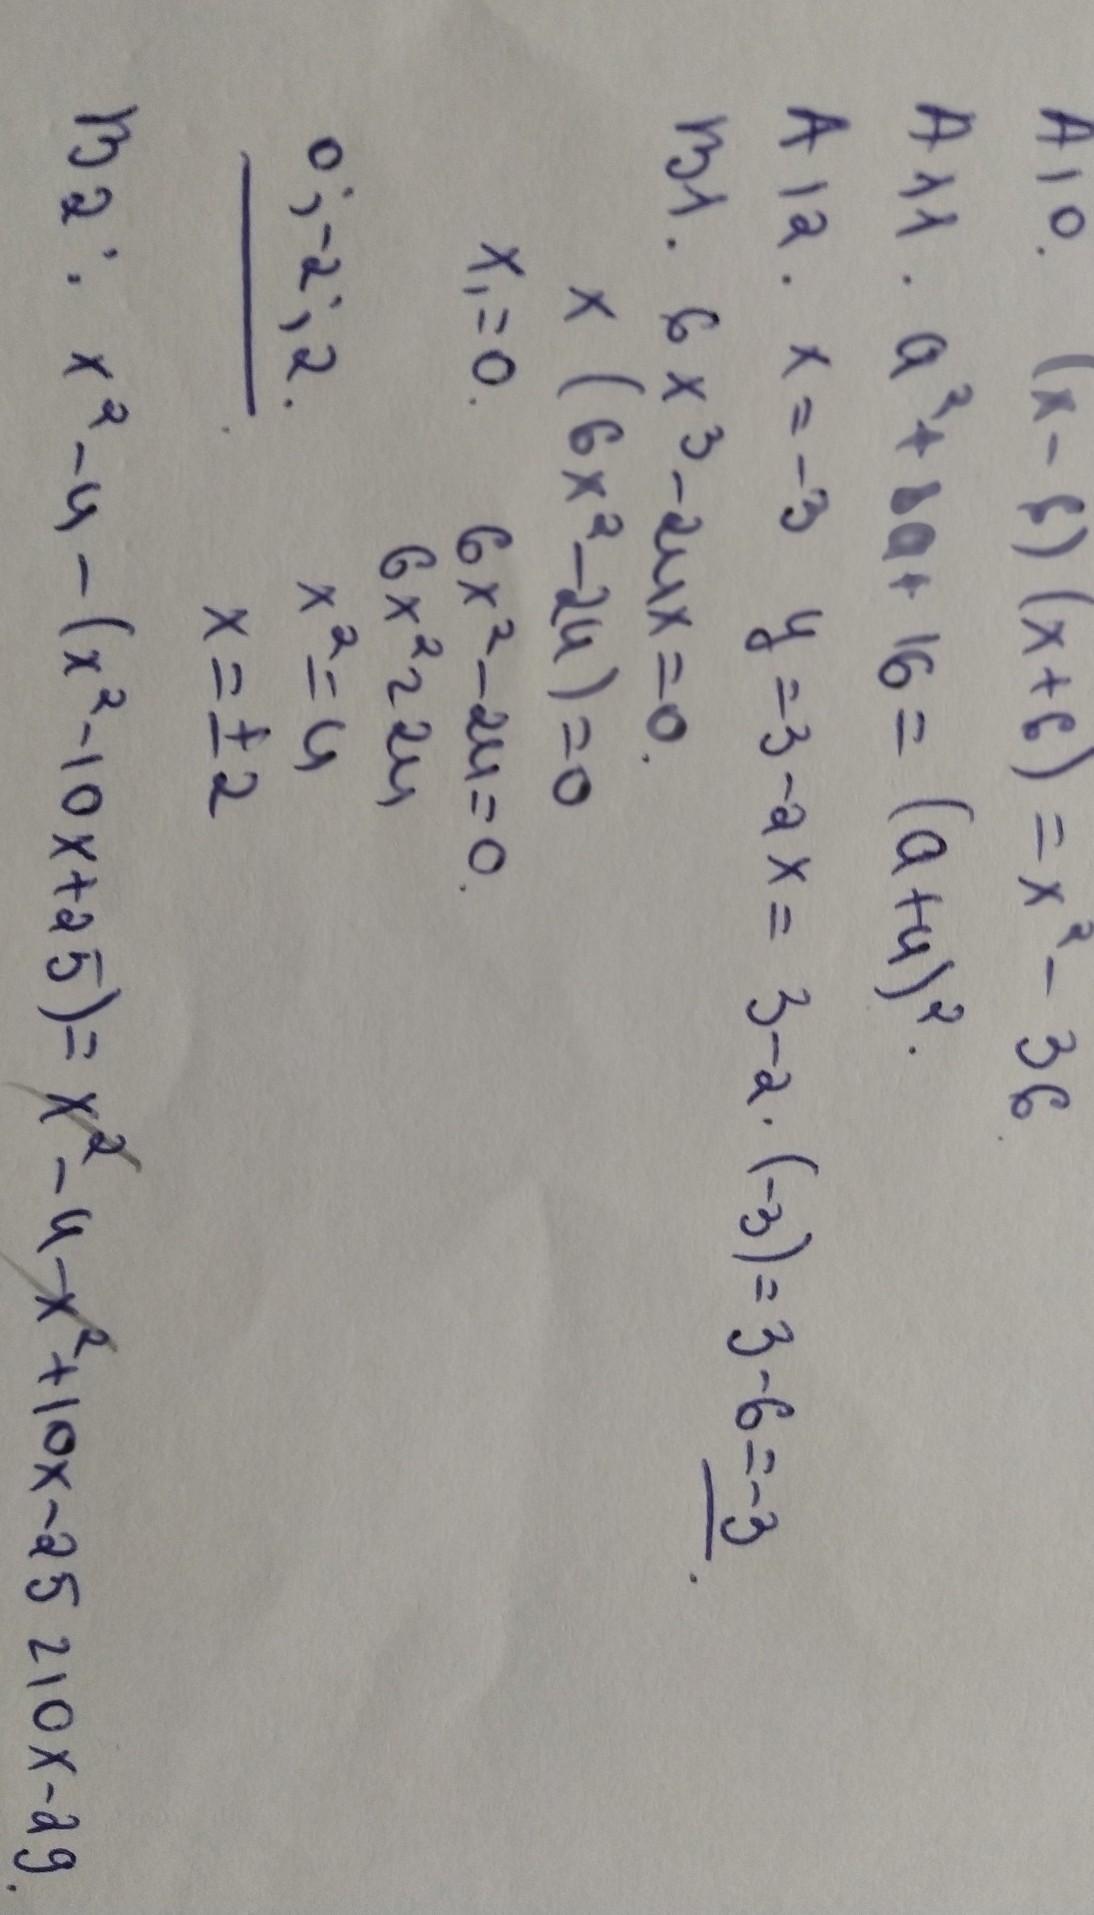 A10. (x-6)(x+6)=x²-36.
A11. a²+8a+16=(a+4)².
A12. x=-3 y=3-2x=3-2·(-3)=3-6=-3.
B1. 6x³-24x=0.
x(6x²-24)=0
x₁=0. 6x²-24=0.
6x²=24
0;-2;2. x²=4
x=±2
B2. x²-4-(x²-10x+25)=x²-4-x²+10x-25=10x-29.